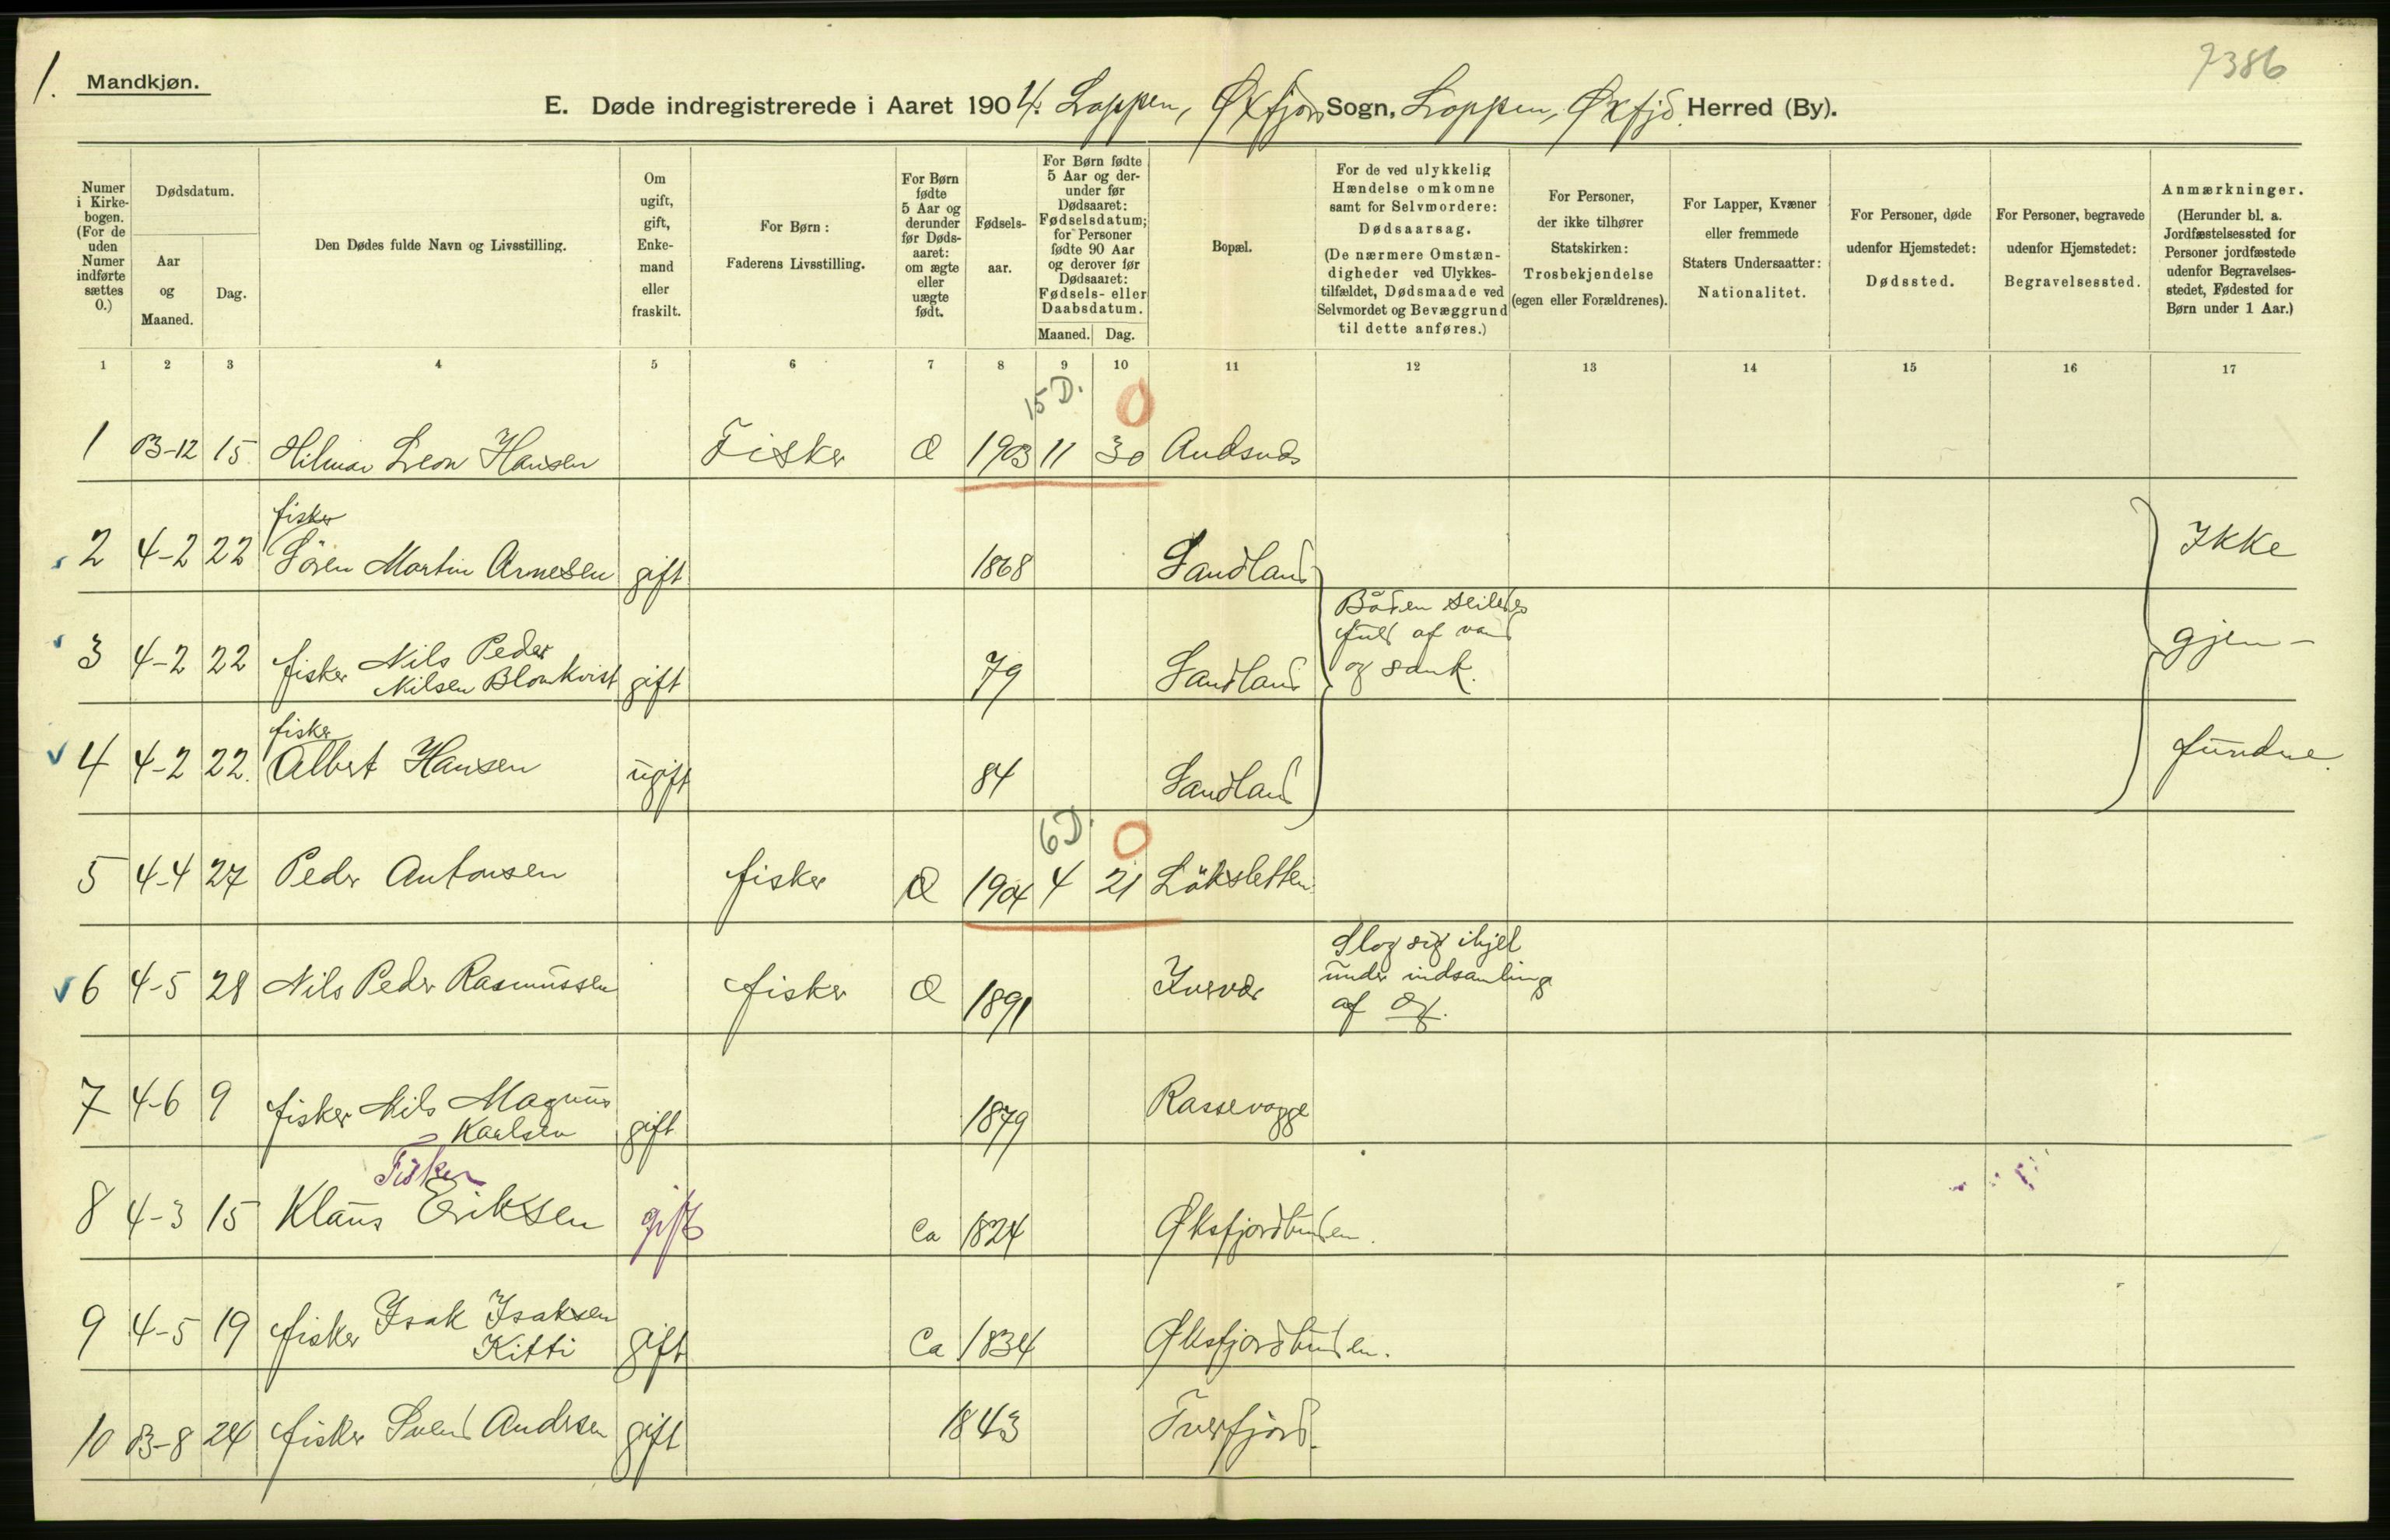 1. Mandkjøn. 7386
E. Døde indregistrerede i Aaret 1904. Loppen, Øxfjord Sogn, Loppen, Øxfjd. Herred (By).
Numer i Kirkebogen. (For de uden Numer indførte sættes 0.)
Dødsdatum.
Aar og Maaned.
Dag.
Den Dødes fulde Navn og Livsstilling.
Om ugift, gift, Enkemand eller fraskilt.
For Børn: Faderens Livsstilling.
For Børn fødte 5 Aar og derunder før Dødsaaret: om ægte eller uægte født.
Fødselsaar.
For Børn fødte 5 Aar og derunder før Dødsaaret: Fødselsdatum; for Personer fødte 90 Aar og derover før Dødsaaret: Fødsels- eller Daabsdatum.
Maaned. Dag.
Bopæl.
For de ved ulykkelig Hændelse omkomne samt for Selvmordere: Dødsaarsag. (De nærmere Omstændigheder ved Ulykkestilfældet, Dødsmaade ved Selvmordet og Bevæggrund til dette anføres.)
For Personer, der ikke tilhører Statskirken: Trosbekjendelse (egen eller Forældrenes).
For Lapper, Kvæner eller fremmede Staters Undersaatter: Nationalitet.
For Personer, døde udenfor Hjemstedet: Dødssted.
For Personer, begravede udenfor Hjemstedet: Begravelsessted.
Anmærkninger. (Herunder bl. a. Jordfæstelsessted for Personer jordfæstede udenfor Begravelsesstedet, Fødested for Børn under 1 Aar.)
1 2 3 4 5 6 7 8 9 10 11 12 13 14 15 16 17
15 D. 0
1 03-12 15 Hilmar Leon Hansen Fisker Æ 1903 11 30 Andsnds
fisker
2 4-2 22 Sören Martin Arnesen gift 1868 Sandland Ikke
Båden seiledes
fuld af vand
og sank.
3 4-2 22 fisker Nils Peder
Nilsen Blomkvist gift 79 Sandland gjen-
fisker
4 4-2 22. Albert Hansen ugift 84 Sandland fundne.
6 D. 0
5 4-4 27 Peder Antonsen fisker Æ 1904 4 21 Löksletten
Slog sig ihjel
under indsamling
af Æg.
6 4-5 28 Nils Peder Rasmussen fisker Æ 1891
7 4-6 9 fisker Nils Magnus
Karlsen gift 1879 Rassevagge
Fisker
8 4-3 15 Klaus Eriksen gift Ca 1824 Øksfjordbunden.
9 4-5 19 fisker Isak Isaksen
Kitti gift Ca 1834 Øksfjordbunden.
10 03-8 24 fisker Svend Andersen gift 1843 Tverfjord.